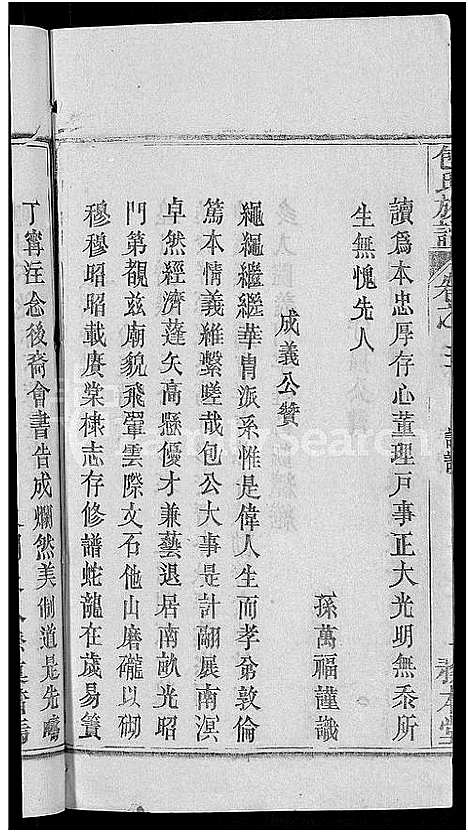 包氏族譜
卷之
敦本堂
讀爲本忠厚存心董理戸事正大光明無忝所
生無愧先人
孫萬福謹識
成義公贊
繩繩繼繼華胄派系惟是偉人生而孝翁敦倫
篤本情義維繫嗟哉包公大事是計翮展南溟
卓然經濟蓬矢高懸優才兼藝退居南畝光昭
門第覩兹廟貌飛翬雲際文石他山磨礲以砌
穆穆昭昭載賡棠棣志存修譜蛇龍在歲易簀
丁寗注念後裔會書告成爛然美制道是先
FamilySearch